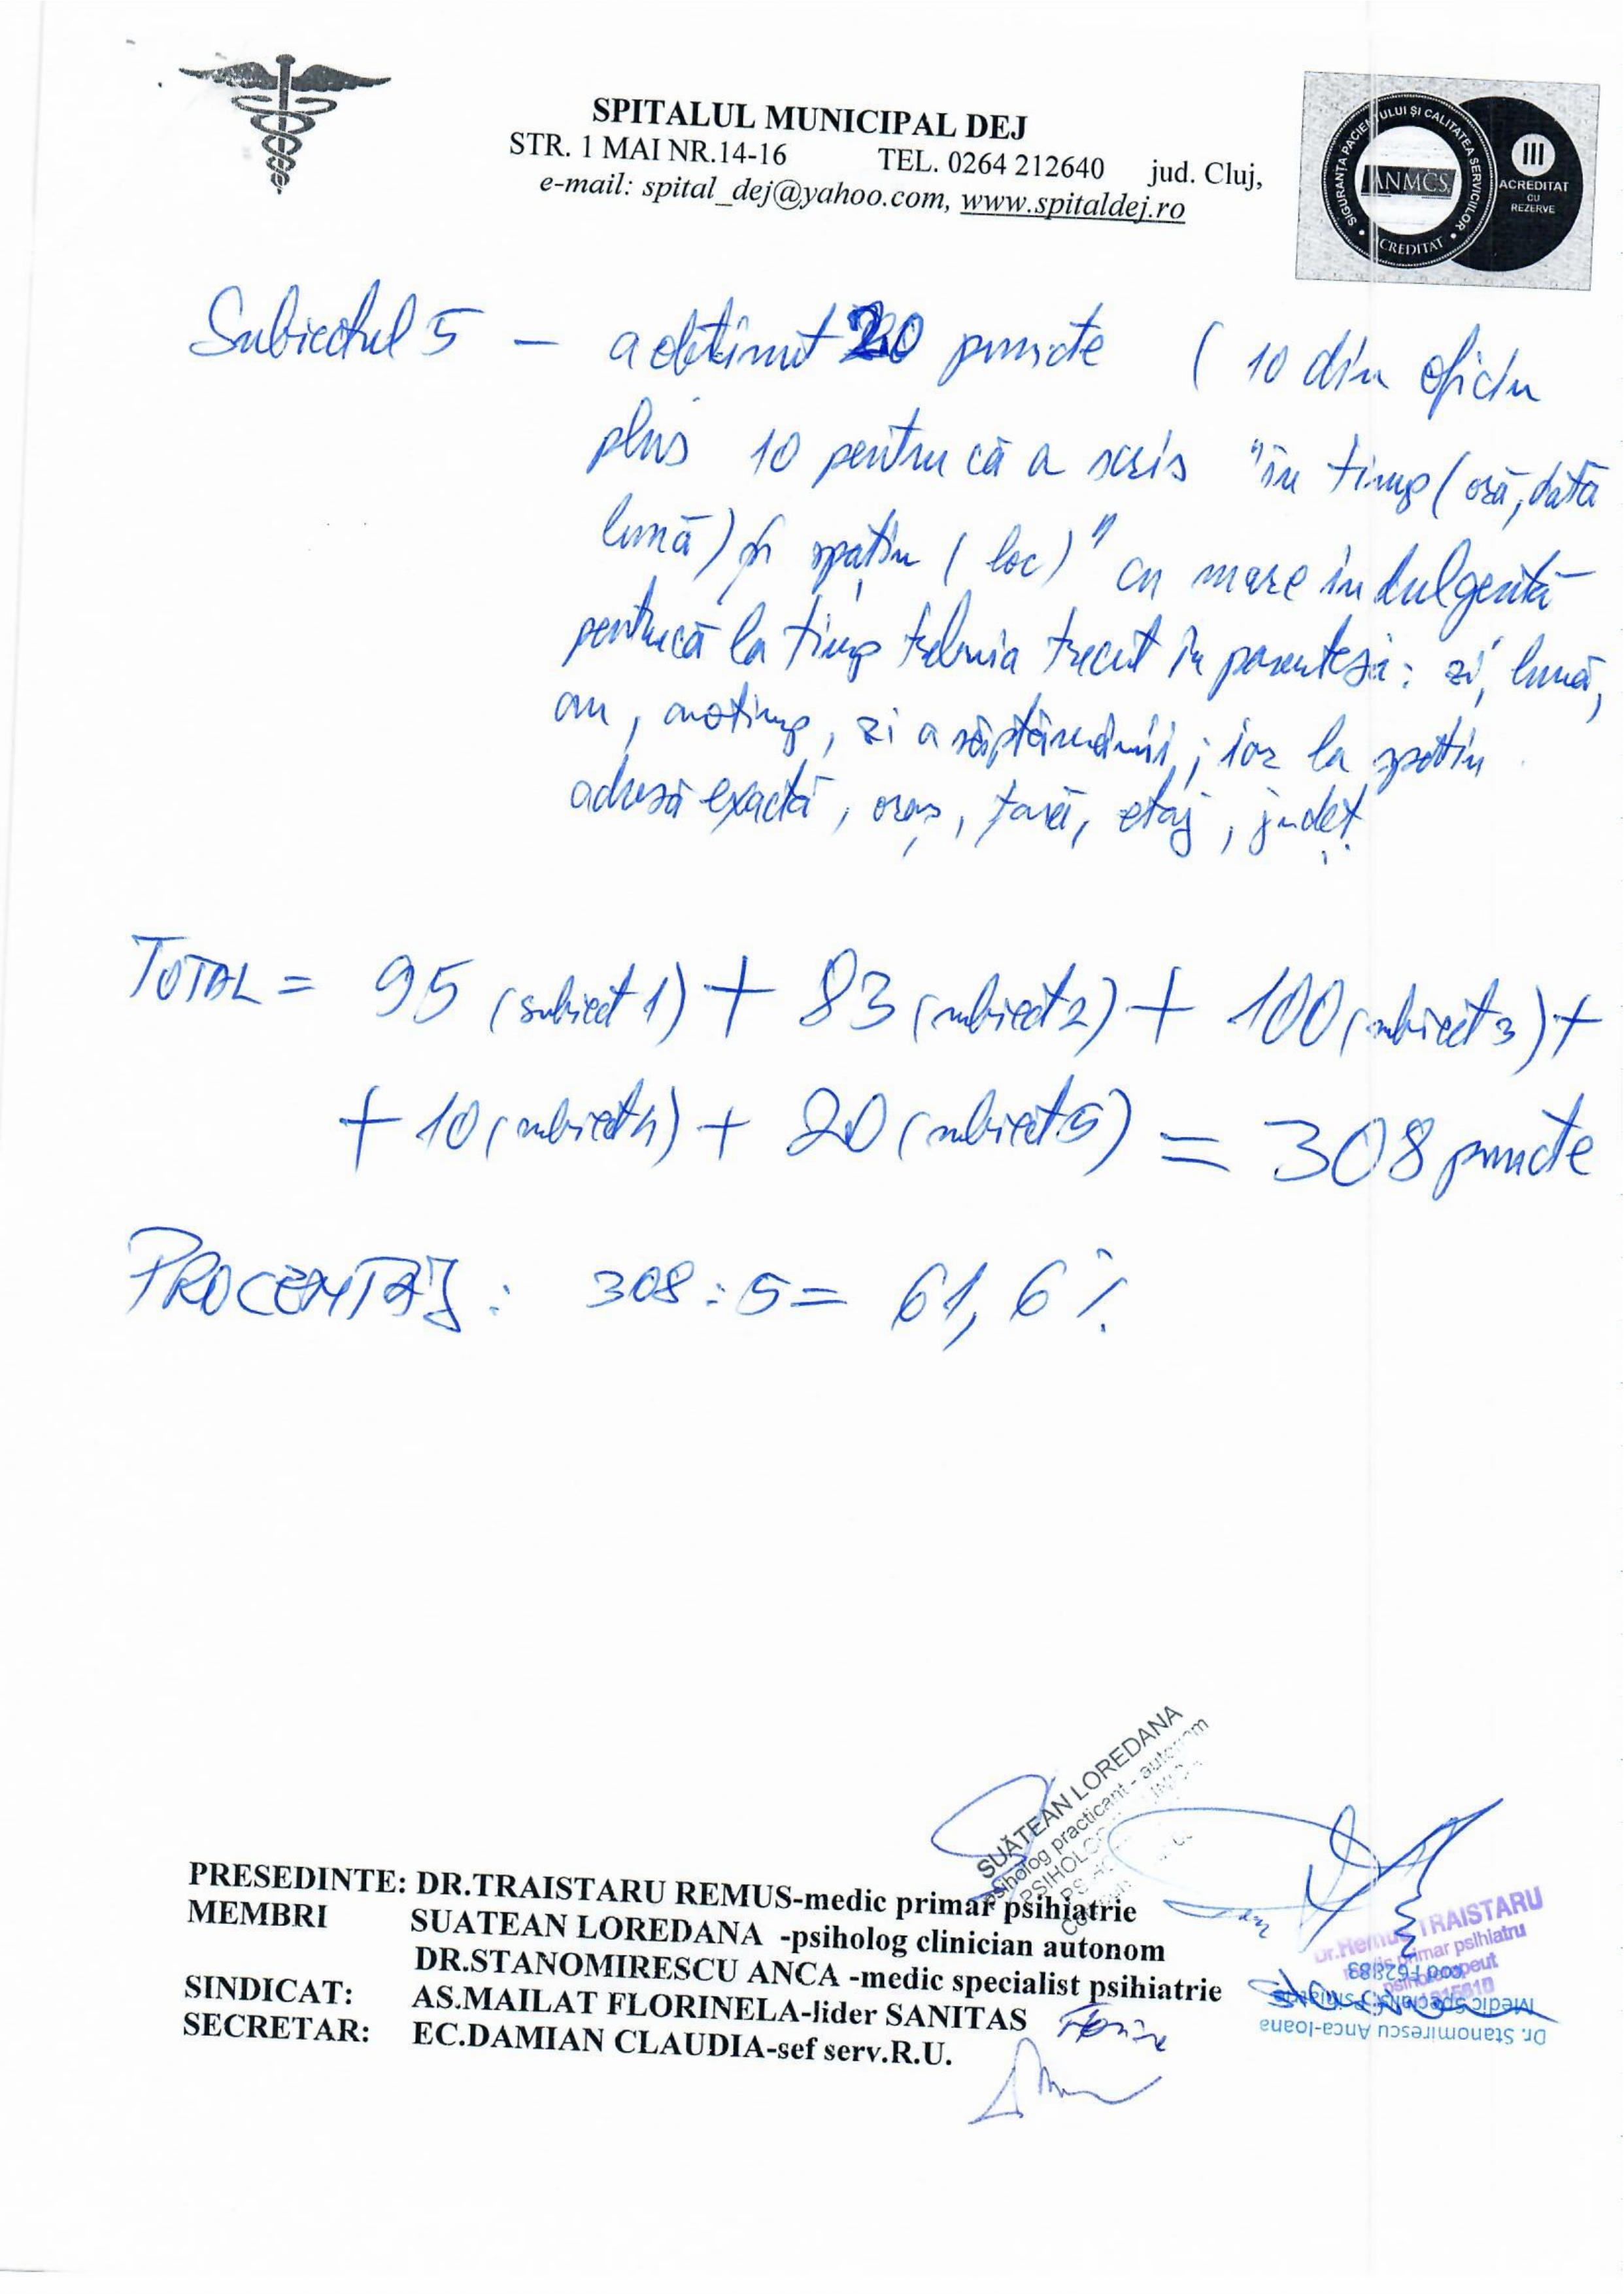 SPITALUL MUNICIPAL DEJ
STR. 1 MAI NR.14-16 TEL. 0264 212640 jud. Cluj,
e-mail: spital_dej@yahoo.com, www.spitaldej.ro
SIGURANȚA PACIENTULUI ȘI CALITATEA SERVICIILOR
ANMCS
ACREDITAT
III
ACREDITAT
CU
REZERVE
Subiectul 5 - a obtinut 20 puncte ( 10 din oficiu
plus 10 pentru că a scris "în timp ( oră, dată
lună) și spațiu ( loc)" cu mare indulgență
pentrucă la timp trebuia trecut în paranteză: zi, lună,
an, anotimp, zi a săptămânii; iar la spatiu
adresă exactă, oraș, țară, etaj, județ.
TOTAL = 95 (subiect 1) + 83 (subiect 2) + 100 (subiect 3) +
+ 10 (subiect 4) + 20 (subiect 5) = 308 puncte
PROCENTAJ: 308 : 5 = 61,6 %
SUĂTEAN LOREDANA
psiholog practicant - autonom
PRESEDINTE: DR.TRAISTARU REMUS-medic primar psihiatrie
MEMBRI SUATEAN LOREDANA -psiholog clinician autonom
DR.STANOMIRESCU ANCA -medic specialist psihiatrie
SINDICAT: AS.MAILAT FLORINELA-lider SANITAS
SECRETAR: EC.DAMIAN CLAUDIA-sef serv.R.U.
Dr.Remus TRAISTARU
medic primar psihiatru
psihoterapeut
Dr. Stanomirescu Anca-Ioana
Medic specialist psihiatrie